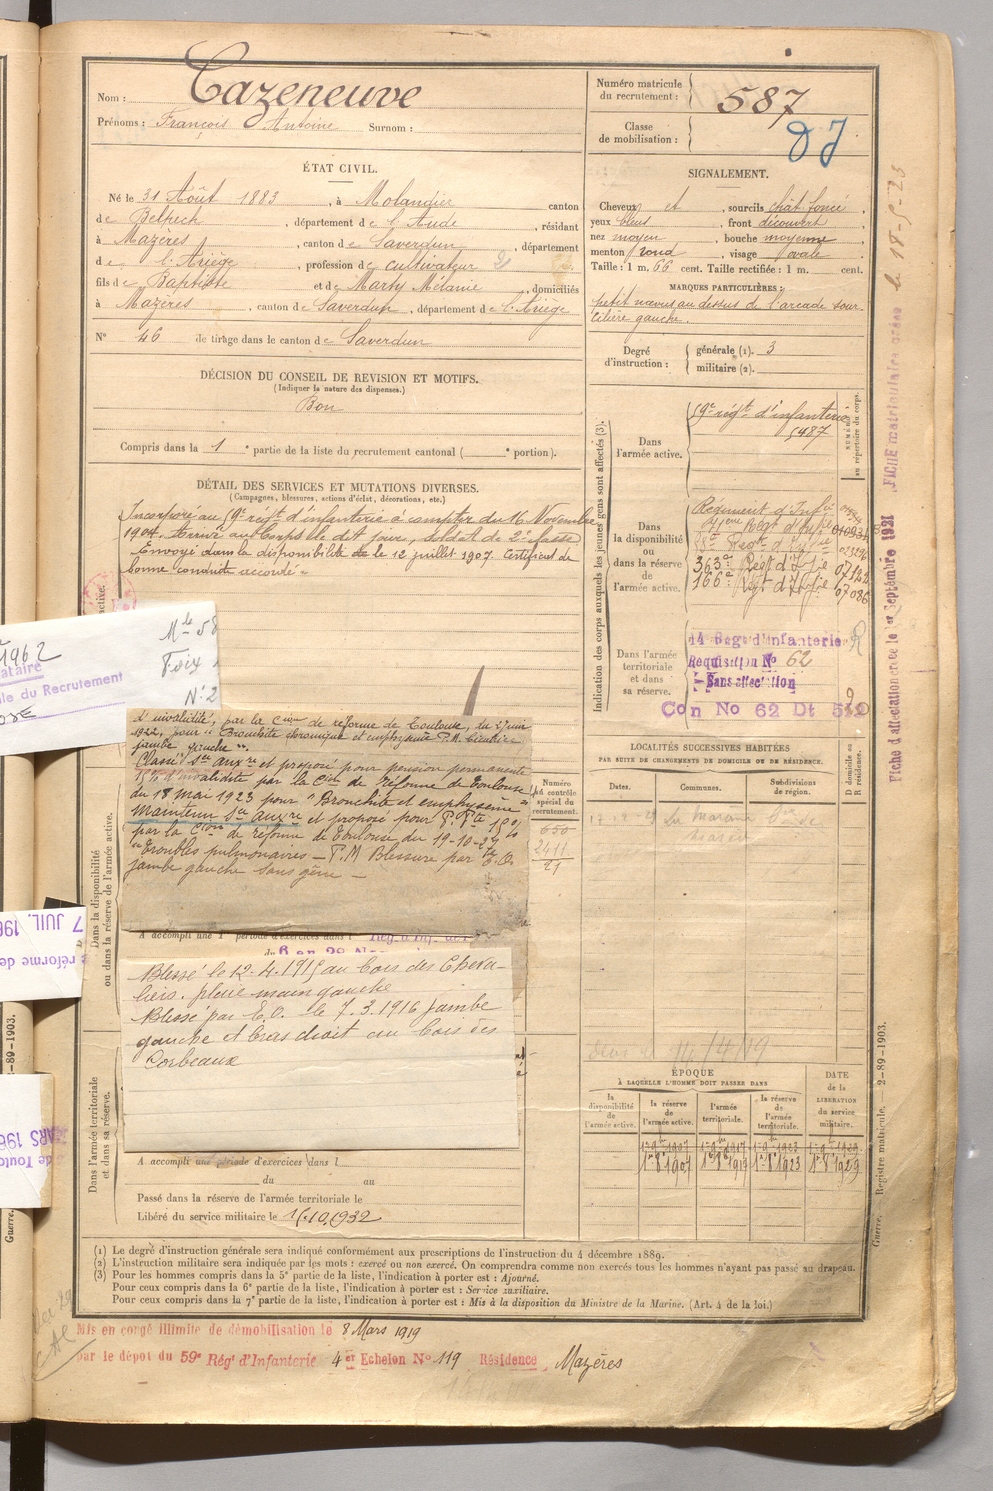 Nom : Cazeneuve
Prénoms : François Antoine Surnom :
Numéro matricule
du recrutement : 587
Classe
de mobilisation :
ÉTAT CIVIL.
Né le 31 Août 1883, à Molandier canton
de Belpech, département de l'Aude, résidant
à Mazères, canton de Saverdun, département
de l'Ariège, profession de cultivateur
fils de Baptiste et de Marty Mélanie, domiciliés
à Mazères, canton de Saverdun, département de l'Ariège
N° 46 de tirage dans le canton de Saverdun
SIGNALEMENT.
Cheveux et, sourcils chât foncé,
yeux bleus, front découvert,
nez moyen, bouche moyenne
menton rond, visage ovale,
Taille : 1 m. 66 cent. Taille rectifiée : 1 m. cent.
MARQUES PARTICULIÈRES :
petit nævus au dessus de l'arcade sour-
cilière gauche.
Degré
d'instruction :
générale (1). 3
militaire (2).
DÉCISION DU CONSEIL DE REVISION ET MOTIFS.
(Indiquer la nature des dispenses.)
Bon
Compris dans la 1e partie de la liste du recrutement cantonal ( e portion).
DÉTAIL DES SERVICES ET MUTATIONS DIVERSES.
(Campagnes, blessures, actions d'éclat, décorations, etc.)
Incorporé au 59e régt d'infanterie à compter du 16 Novembre
1904. Arrivé au Corps le dit jour, soldat de 2e classe
Envoyé dans la disponibilité le 12 juillet 1907. Certificat de
bonne conduite accordé
Indication des corps auxquels les jeunes gens sont affectés (3).
Dans
l'armée active.
59e régt d'infanterie
5487
NUMÉRO
au répertoire du corps.
Dans
la disponibilité
ou
dans la réserve
de
l'armée active.
Régiment d'Infie
363e Regt d'Infie 07122
166e Regt d'Infie 07086
Dans l'armée
territoriale
et dans
sa réserve.
14 Regt d'infanterie
Requisition N° 62
Sans affectation
Con No 62 Dt
FICHE matriculaire créée le 18-5-23
Fiche d'affectation créée le 1er Septembre 1921
1962
du Recrutement
Mle 58
Foix
N° 2
d'invalidité, par la Cion de réforme de Toulouse, du 2 juin
1922, pour "Bronchite chronique et emphysème P.M. Cicatrice
jambe gauche".
Classé Sce auxre et proposé pour pension permanente
15% d'invalidité par la Cion de Réforme de Toulouse
du 18 mai 1923 pour "Bronchite et emphysème"
Maintenu Sce auxre et proposé pour P.Pte 15%
par la Cion de réforme de Toulouse du 19-10-27
"Troubles pulmonaires — P.M Blessure par E.O.
jambe gauche sans gêne —
Numéro
au contrôle
spécial du
recrutement.
650
2411
21
LOCALITÉS SUCCESSIVES HABITÉES
PAR SUITE DE CHANGEMENTS DE DOMICILE OU DE RÉSIDENCE.
Dates.
Communes.
Subdivisions
de région.
D domicile ou
R résidence.
Dans la disponibilité
ou dans la réserve de l'armée active.
7 JUIL. 196
A accompli une 1e période d'exercices dans l
Blessé le 12-4-1915 au bois des Cheva-
liers, plaie main gauche
Blessé par E.O. le 7.3.1916 jambe
gauche et bras droit au bois des
Corbeaux
14/4/19
ÉPOQUE
À LAQUELLE L'HOMME DOIT PASSER DANS
la
disponibilité
de
l'armée active.
la réserve
de
l'armée active.
l'armée
territoriale.
la réserve
de
l'armée
territoriale.
DATE
de la
LIBÉRATION
du service
militaire.
Dans l'armée territoriale
et dans sa réserve.
A accompli une période d'exercices dans l
du au
Passé dans la réserve de l'armée territoriale le
Libéré du service militaire le 15.10.1932
(1) Le degré d'instruction générale sera indiqué conformément aux prescriptions de l'instruction du 4 décembre 1889.
(2) L'instruction militaire sera indiquée par les mots : exercé ou non exercé. On comprendra comme non exercés tous les hommes n'ayant pas passé au drapeau.
(3) Pour les hommes compris dans la 5e partie de la liste, l'indication à porter est : Ajourné.
Pour ceux compris dans la 6e partie de la liste, l'indication à porter est : Service auxiliaire.
Pour ceux compris dans la 7e partie de la liste, l'indication à porter est : Mis à la disposition du Ministre de la Marine. (Art. 4 de la loi.)
Guerre. Registre matricule. — 2-89-1903.
Mis en congé illimité de démobilisation le 8 Mars 1919
par le dépot du 59e Régt d'Infanterie 4er Echelon N° 119 Résidence Mazères